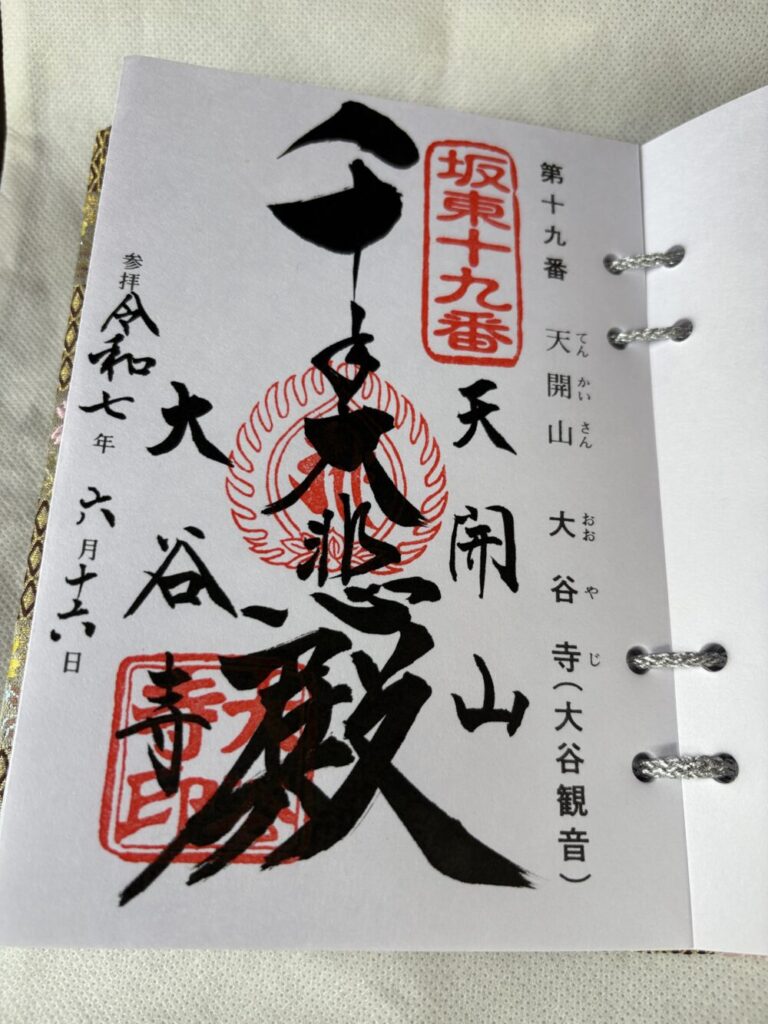 第十九番 天開山 大谷寺(大谷観音)
てんかいさん おおやじ
坂東十九番
天開山
千手大悲殿
大谷寺
参拝令和七年 六月十六日